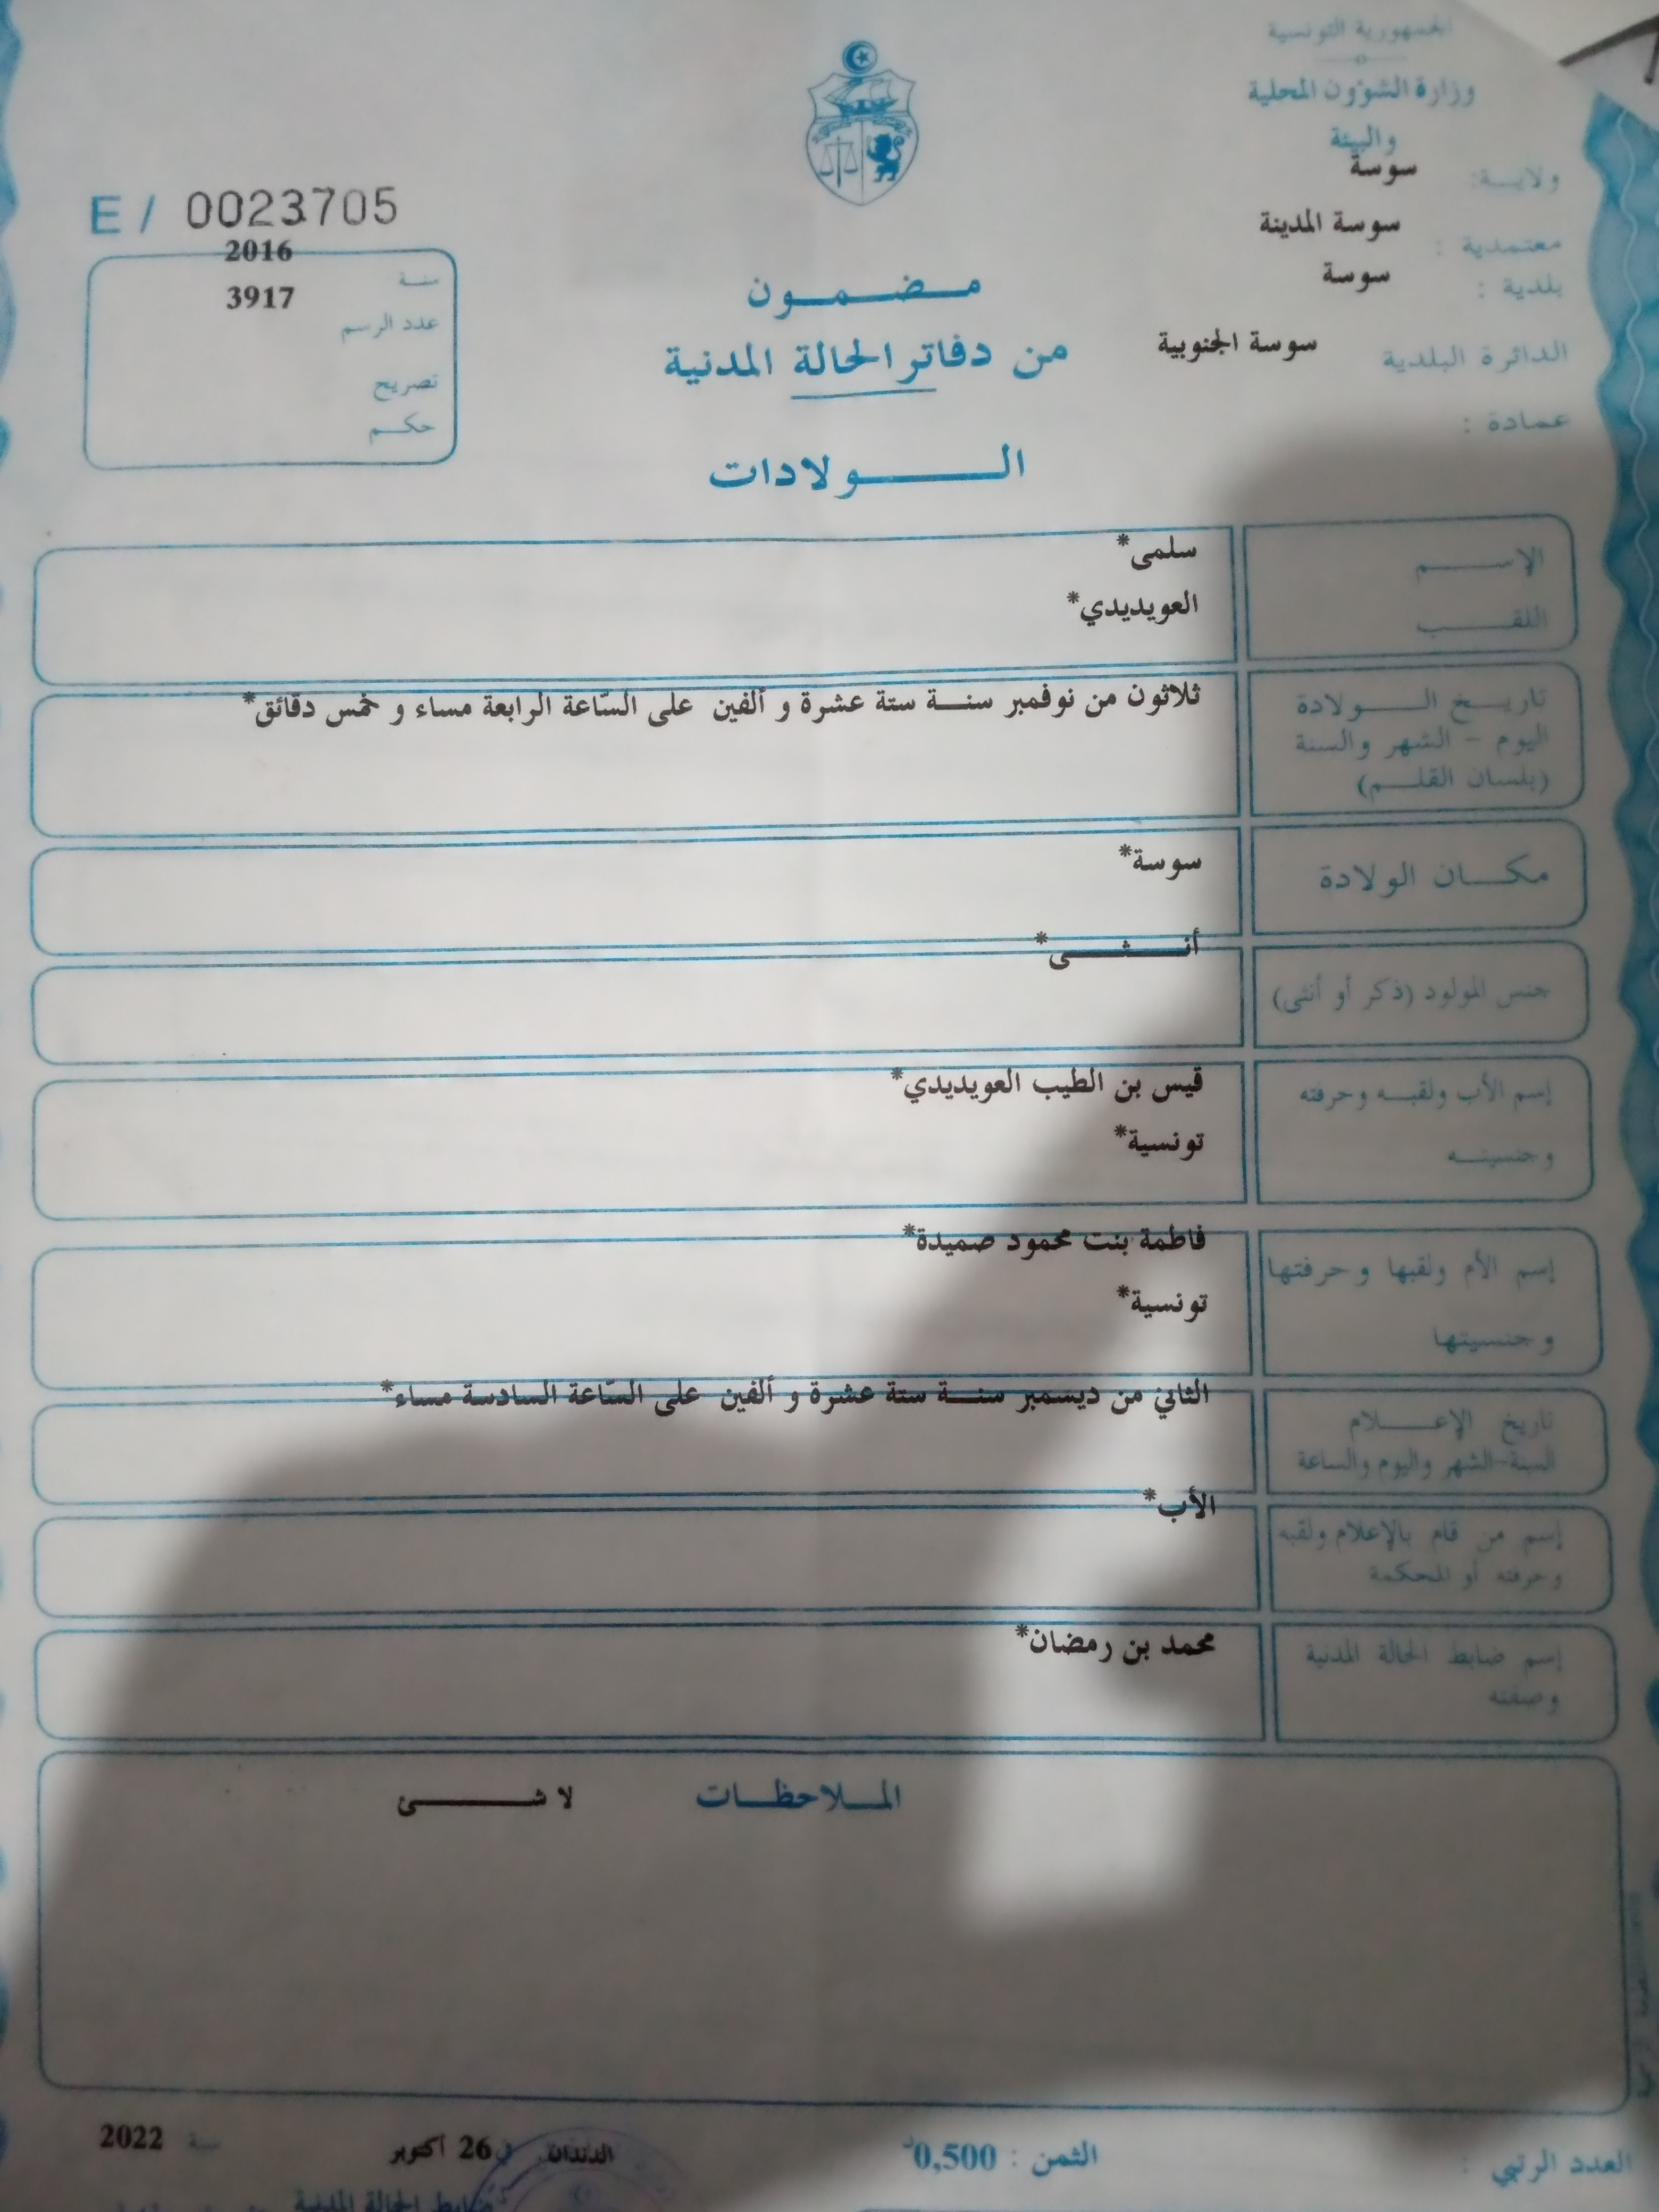 الجمهورية التونسية
وزارة الشؤون المحلية
والبيئة
ولايـــة: سوسة
معتمدية : سوسة المدينة
بلدية : سوسة
الدائرة البلدية سوسة الجنوبية
عمادة :
E / 0023705
سنة 2016
عدد الرسم 3917
تصريح
حكم
مضمون
من دفاتر الحالة المدنية
الولادات
الإسم سلمى*
اللقب العويديدي*
تاريخ الولادة ثلاثون من نوفمبر سنة ستة عشرة و ألفين على السّاعة الرابعة مساء و خمس دقائق*
اليوم - الشهر والسنة
(بلسان القلم)
مكان الولادة سوسة*
جنس المولود (ذكر أو أنثى) أنثى*
إسم الأب ولقبه وحرفته قيس بن الطيب العويديدي*
وجنسيته تونسية*
إسم الأم ولقبها وحرفتها فاطمة بنت محمود صميدة*
وجنسيتها تونسية*
تاريخ الإعلام الثاني من ديسمبر سنة ستة عشرة و ألفين على السّاعة السادسة مساء*
السنة-الشهر واليوم والساعة
إسم من قام بالإعلام ولقبه الأب*
وحرفته أو المحكمة
إسم ضابط الحالة المدنية محمد بن رمضان*
وصفته
الملاحظات لا شئ
العدد الرتبي :
الثمن : 0,500د
الدندان في 26 أكتوبر سنة 2022
ضابط الحالة المدنية